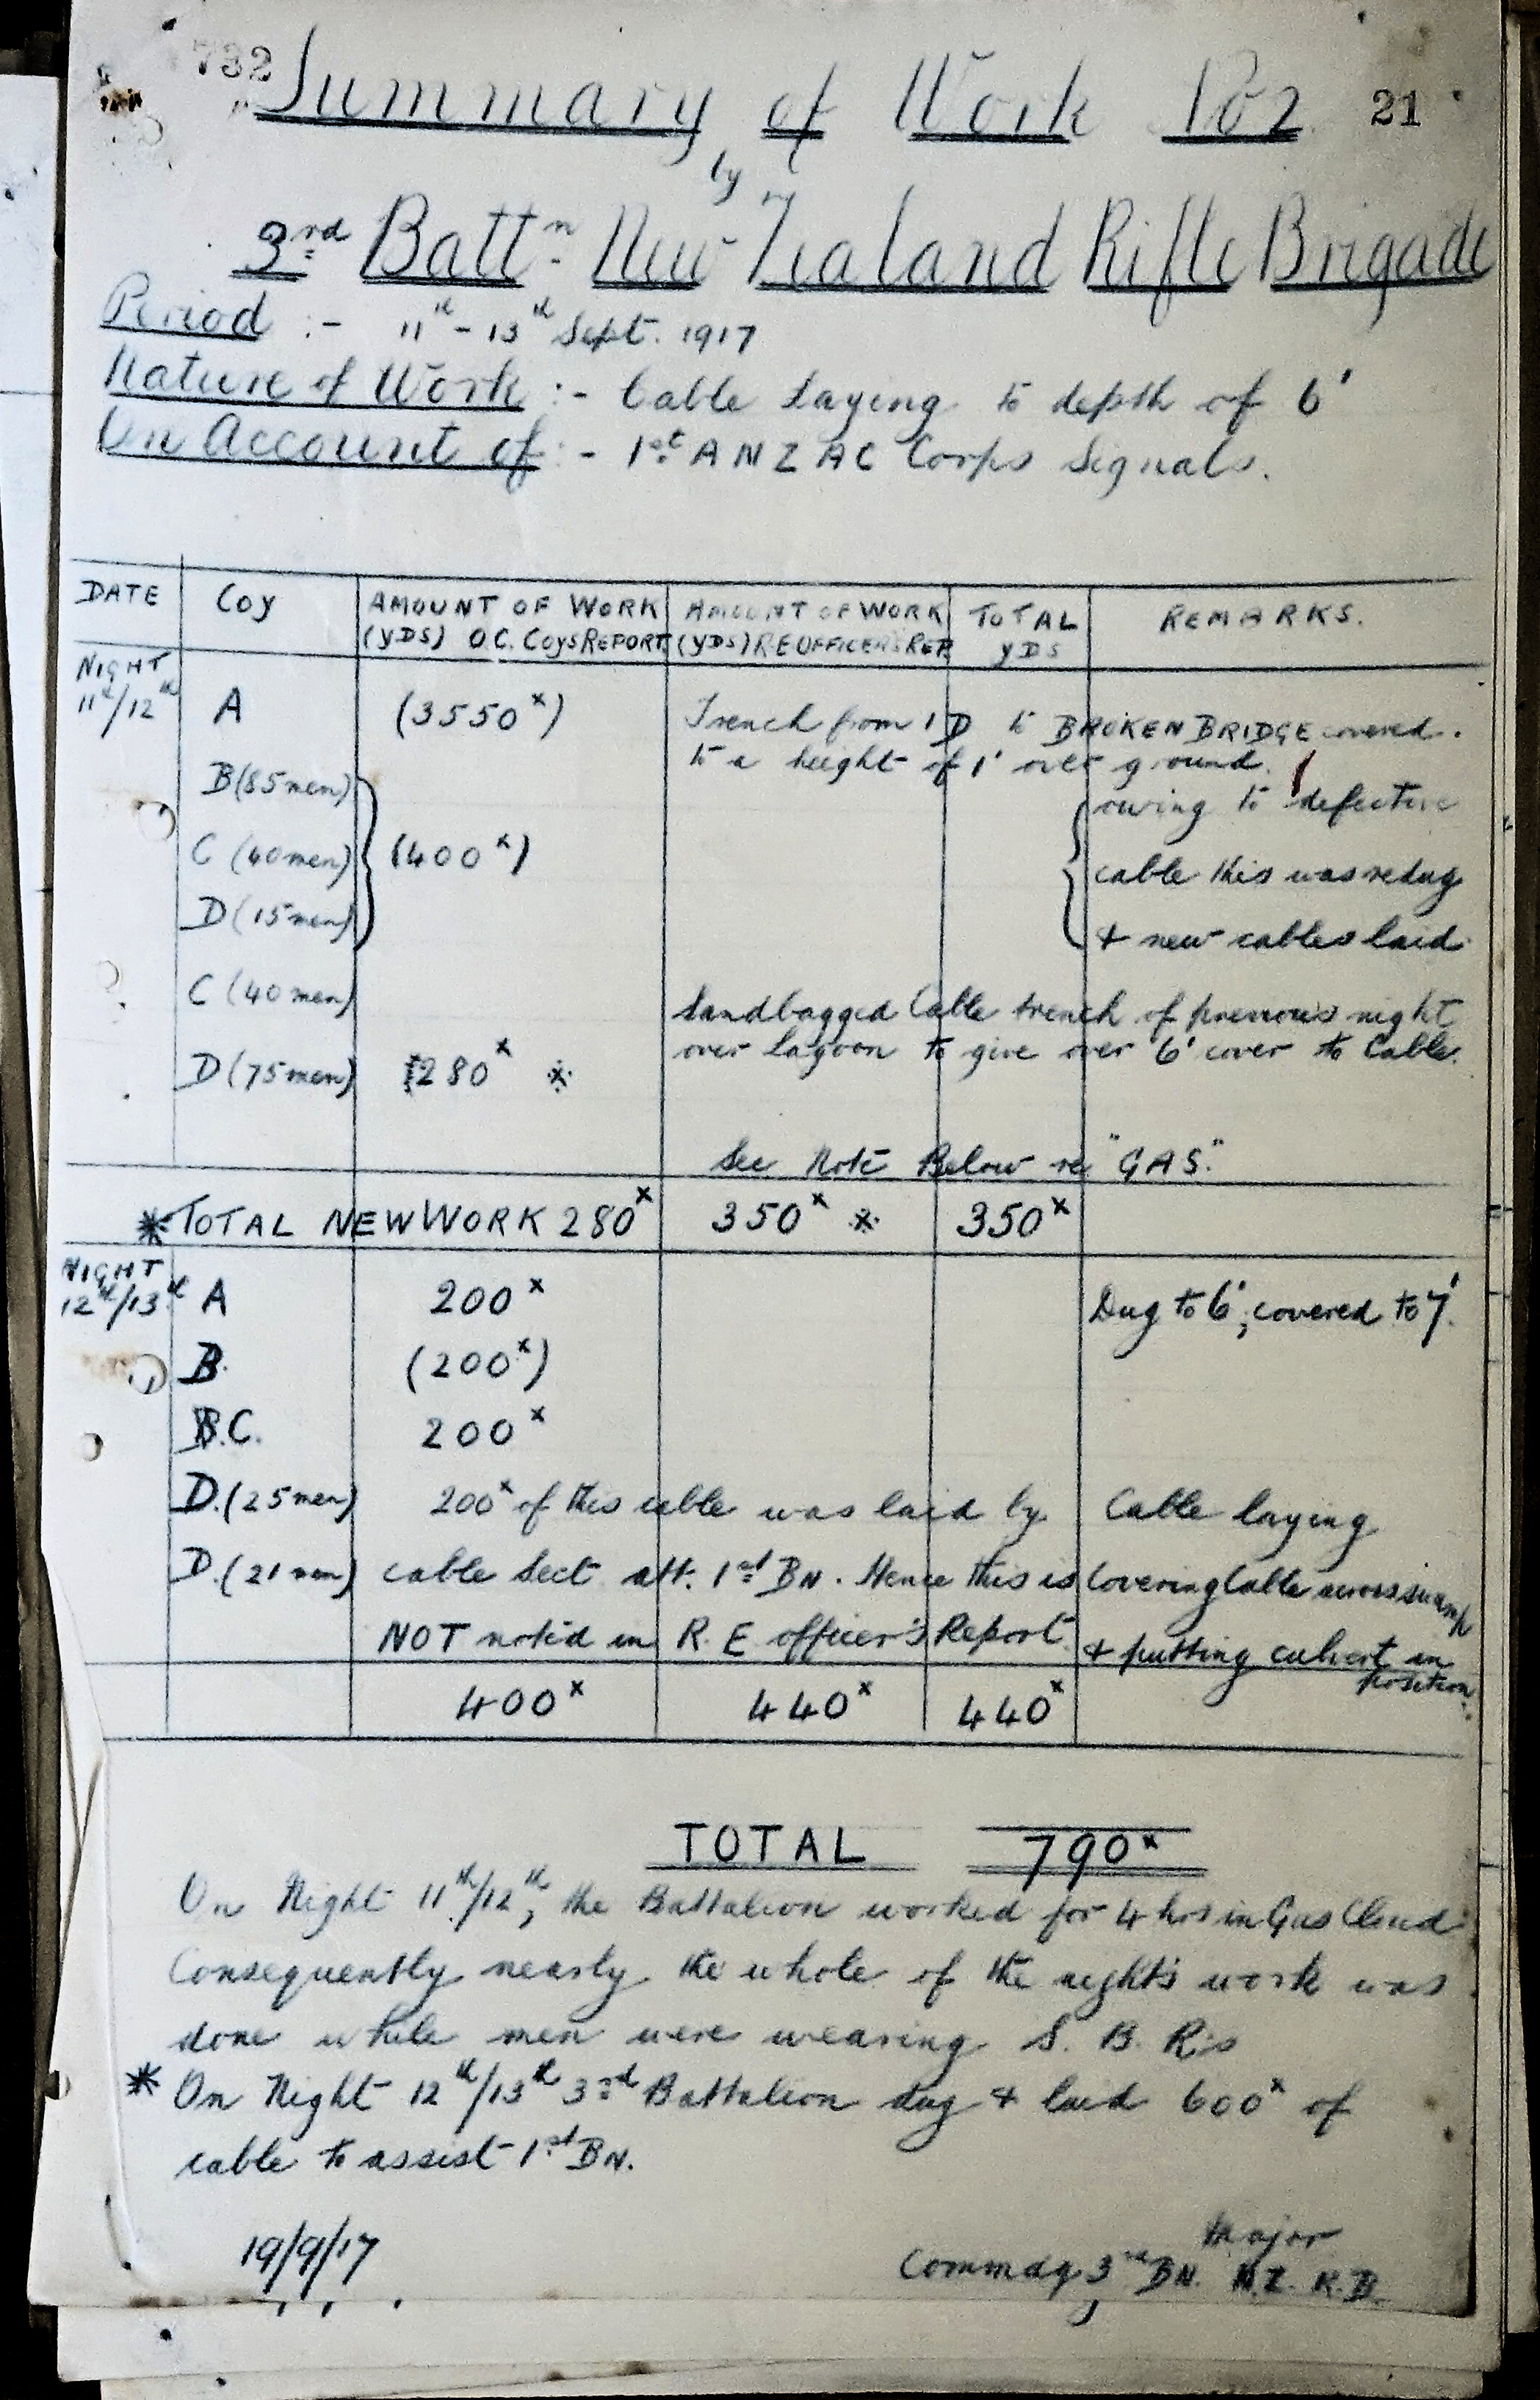 732
Summary of Work No 2 21
by
3rd Battn. New Zealand Rifle Brigade
Period :- 11th - 13th Sept. 1917
Nature of Work :- Cable laying to depth of 6'
On Account of :- 1st ANZAC Corps Signals.
DATE Coy AMOUNT OF WORK (YDS) O.C. COYS REPORT AMOUNT OF WORK (YDS) RE OFFICER'S REP TOTAL YDS REMARKS.
NIGHT 11th/12th A (3550x) Trench from 1D to BROKEN BRIDGE covered.
to a height of 1' over ground.
B (85 men) owing to defective
C (40 men) (400x) cable this was redug
D (15 men) & new cables laid
C (40 men) Sandbagged Cable trench of previous night
over lagoon to give over 6' cover to Cable.
D (75 men) 280x ※
See Note Below re "GAS."
* TOTAL NEW WORK 280x 350x ※ 350x
NIGHT 12th/13th A 200x Dug to 6', covered to 7'.
B. (200x)
C. 200x
D. (25 men) 200x of this cable was laid by Cable laying
D. (21 men) cable Sect. att. 1st BN. Hence this is Covering Cable across swamp
NOT noted in R.E. officer's Report. & putting culvert in
position.
400x 440x 440x
TOTAL 790x
On Night 11th/12th, the Battalion worked for 4 hrs in Gas Cloud
Consequently nearly the whole of the night's work was
done while men were wearing S. B. R's
* On Night 12th/13th 3rd Battalion dug & laid 600x of
cable to assist 1st BN.
19/9/17
Major
Commdg 3rd BN. N.Z. R.B.